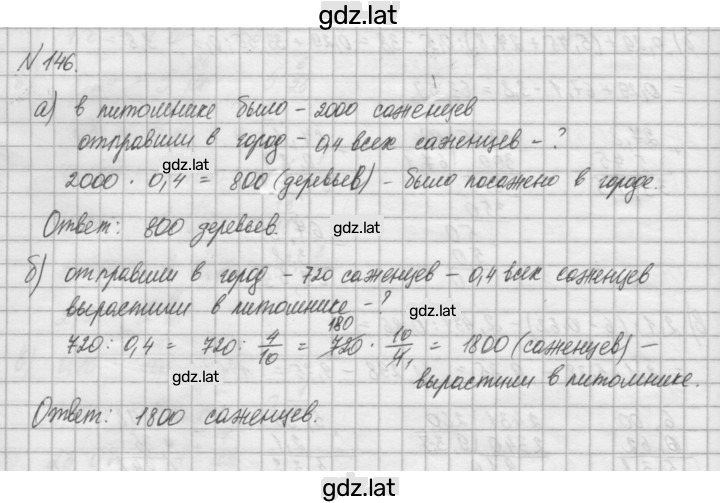 gdz.lat
N 146.
а) в питомнике было – 2000 саженцев
отправили в город – 0,4 всех саженцев – ?
gdz.lat
2000 · 0,4 = 800 (деревьев) – было посажено в городе.
Ответ: 800 деревьев.
gdz.lat
б) отправили в город – 720 саженцев – 0,4 всех саженцев
вырастили в питомнике – ?
gdz.lat
720 : 0,4 = 720 : 4/10 = 720 180 · 10/4 1 = 1800 (саженцев) –
gdz.lat
вырастили в питомнике.
Ответ: 1800 саженцев.
gdz.lat